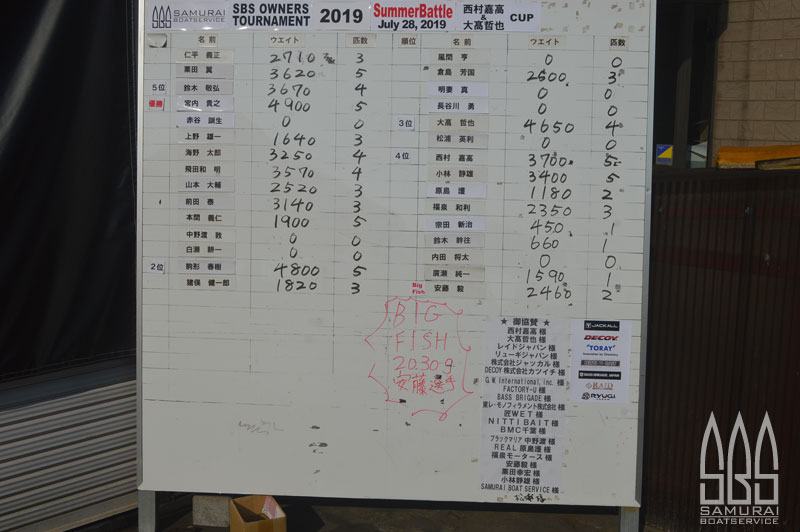 SAMURAI
BOATSERVICE
SBS OWNERS
TOURNAMENT 2019
SummerBattle
July 28, 2019
西村嘉高
&
大髙哲也
CUP
名前 ウエイト 匹数 順位 名前 ウエイト 匹数
仁平 義正 2710 3
栗田 翼 3620 5
5位 鈴木 敬弘 3670 4
優勝 宮内 貴之 4900 5
赤谷 馴生
上野 雄一 1640 3
海野 太郎 3250 4
飛田和 明 3570 4
山本 大輔 2520 3
前田 泰 3140 3
本間 義仁 1900 5
中野渡 敦 0 0
白瀬 耕一 0 0
2位 駒形 春樹 4800 5
猪俣 健一郎 1820 3
風間 亨 0 0
倉島 芳国 2600 3
明妻 真 0 0
長谷川 勇 0 0
3位 大髙 哲也 4650 4
松浦 英利 0 0
4位 西村 嘉高 3700 5
小林 静雄 3400 5
原島 護 1180 2
福泉 和利 2350 3
宗田 新治 450 1
鈴木 幹往 660 1
内田 将太 0 0
廣瀬 純一 1590 1
Big
Fish
安藤 毅 2460 2
BIG
FISH
2030g
安藤選手
★ 御協賛 ★
西村嘉高 様
大髙哲也 様
レイドジャパン 様
リューギジャパン 様
株式会社ジャッカル 様
DECOY 株式会社カツイチ 様
G.W.International,inc. 様
FACTORY-U 様
BASS BRIGADE 様
東レ・モノフィラメント株式会社 様
匠WET 様
NITTIBAIT 様
BMC千葉 様
ブラックマリア 中野渡 様
REAL 原島護 様
福泉モータース 様
安藤毅 様
栗田幸宏 様
小林静雄 様
SAMURAI BOAT SERVICE 様
JACKALL
DECOY
"TORAY"
RAID
RYUGI
SBS
SAMURAI
BOATSERVICE